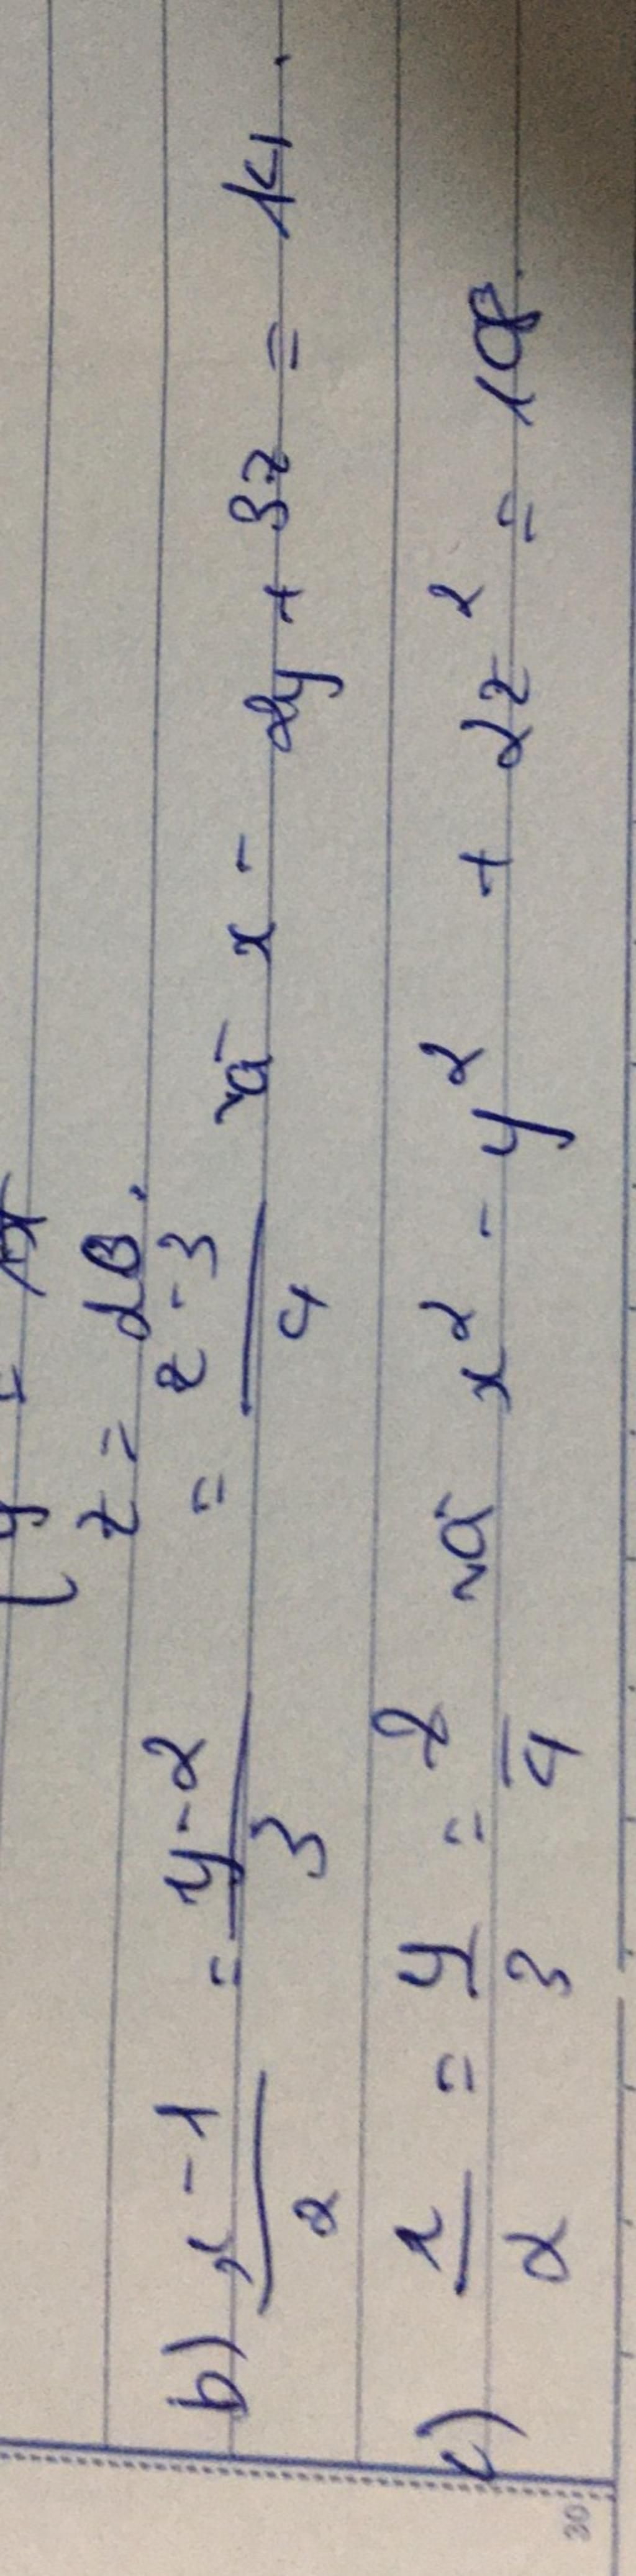 z = 28.
b) x - 1 / 2 = y - 2 / 3 = z - 3 / 4 và x - 2y + 3z = 14.
c) x / 2 = y / 3 = z / 4 và x² - y² + 2z² = 108.
30